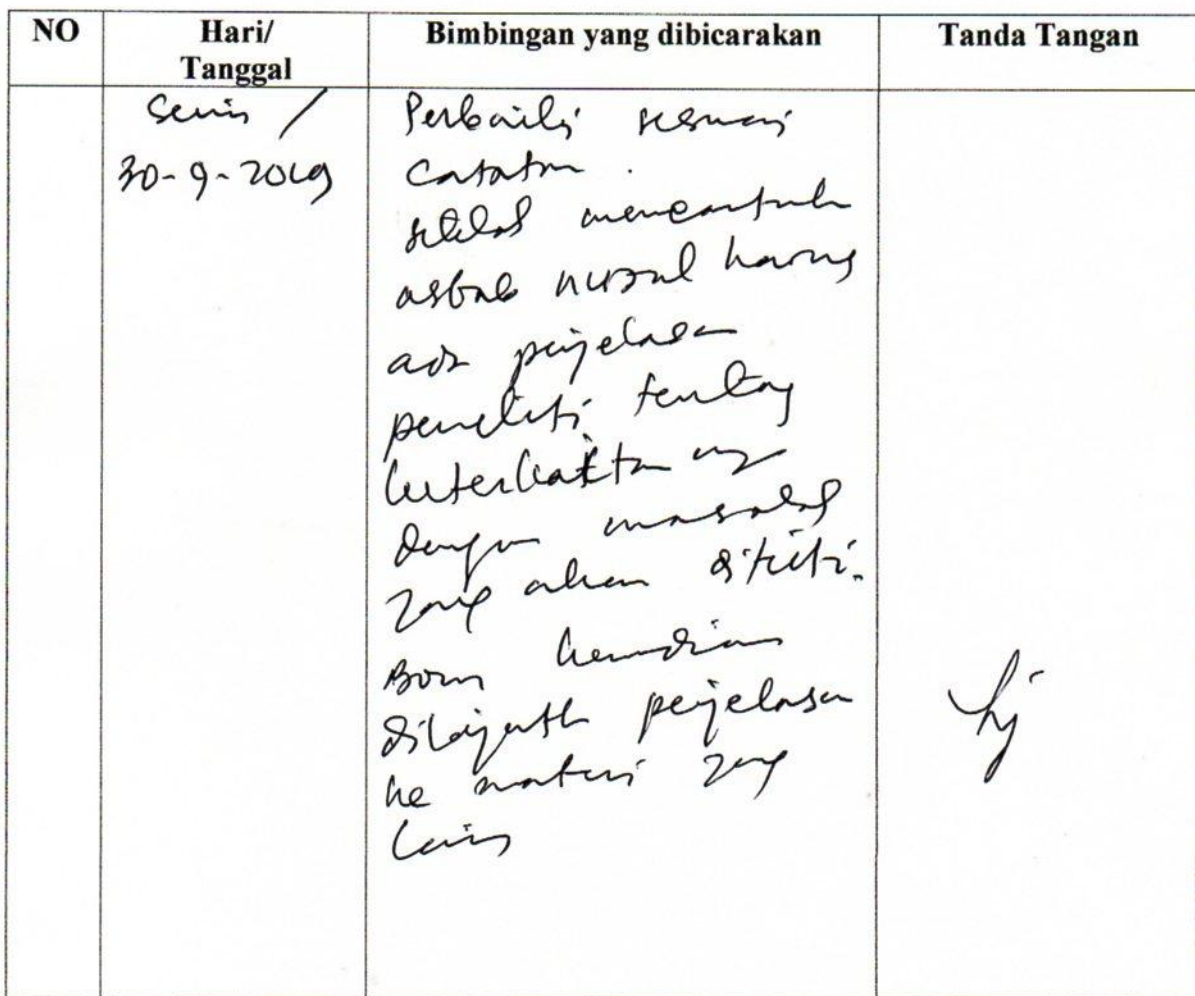 NO Hari/ Bimbingan yang dibicarakan Tanda Tangan
Tanggal
Senin /
30-9-2019
Perbaiki sesuai
Catatan.
setelah mencantumkan
asbab nuzul harus
ada penjelasan
peneliti tentang
keterkaitannya
dengan masalah
yang akan diteliti.
Baru kemudian
dilanjutkan penjelasan
ke materi yang
lain